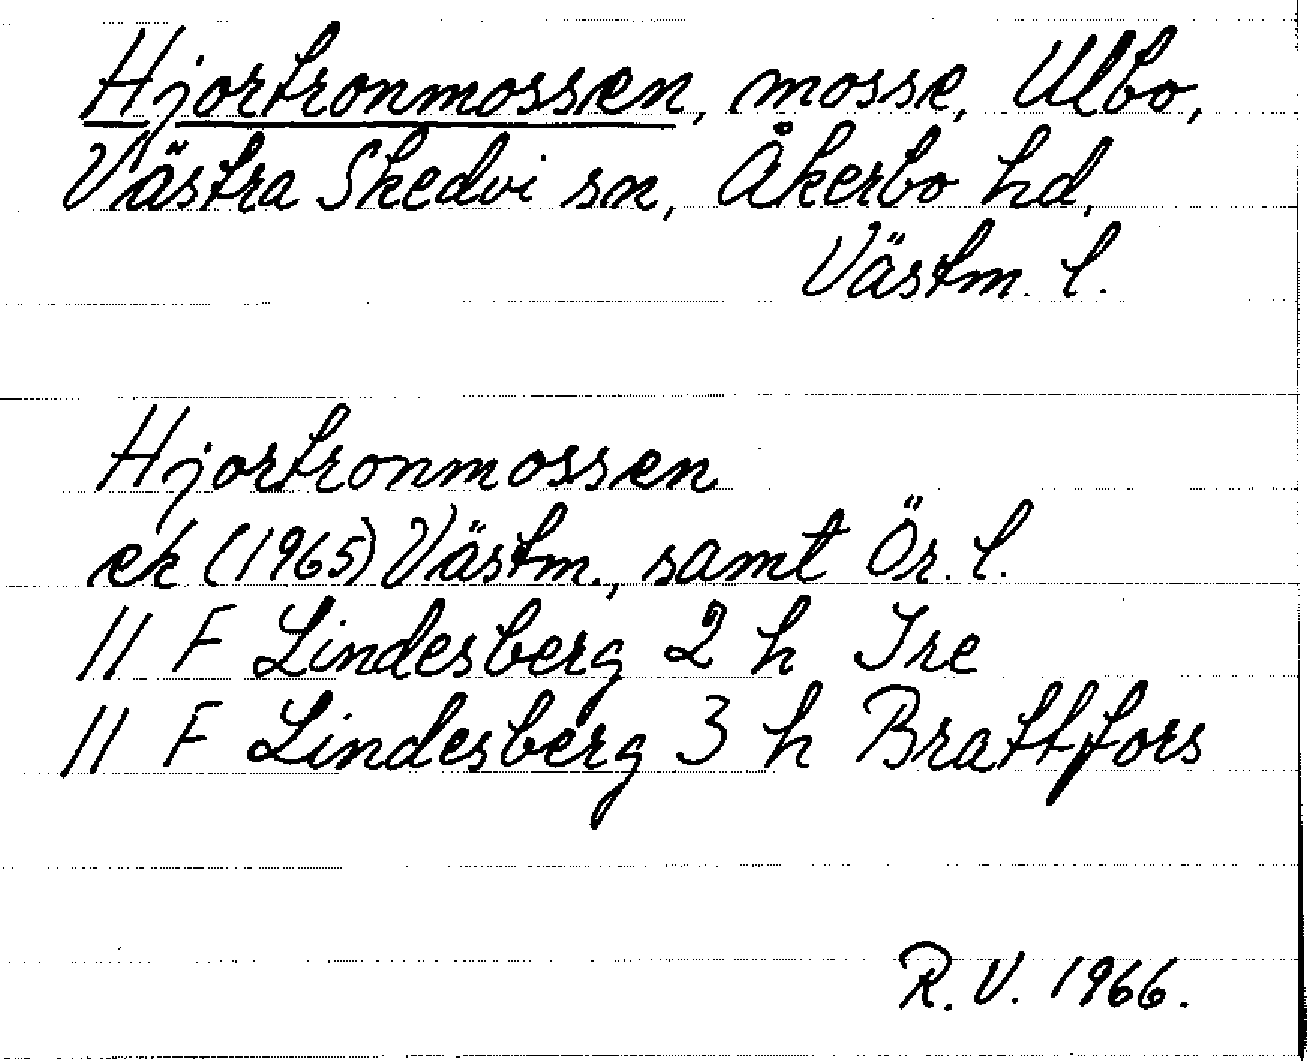 Hjortronmossen, mosse, Ulbo,
Västra Skedvi sn, Åkerbo hd,
Västm. l.
Hjortronmossen
ek (1965) Västm., samt Ör. l.
11 F Lindesberg 2 h Ire
11 F Lindesberg 3 h Brattfors
R. V. 1966.